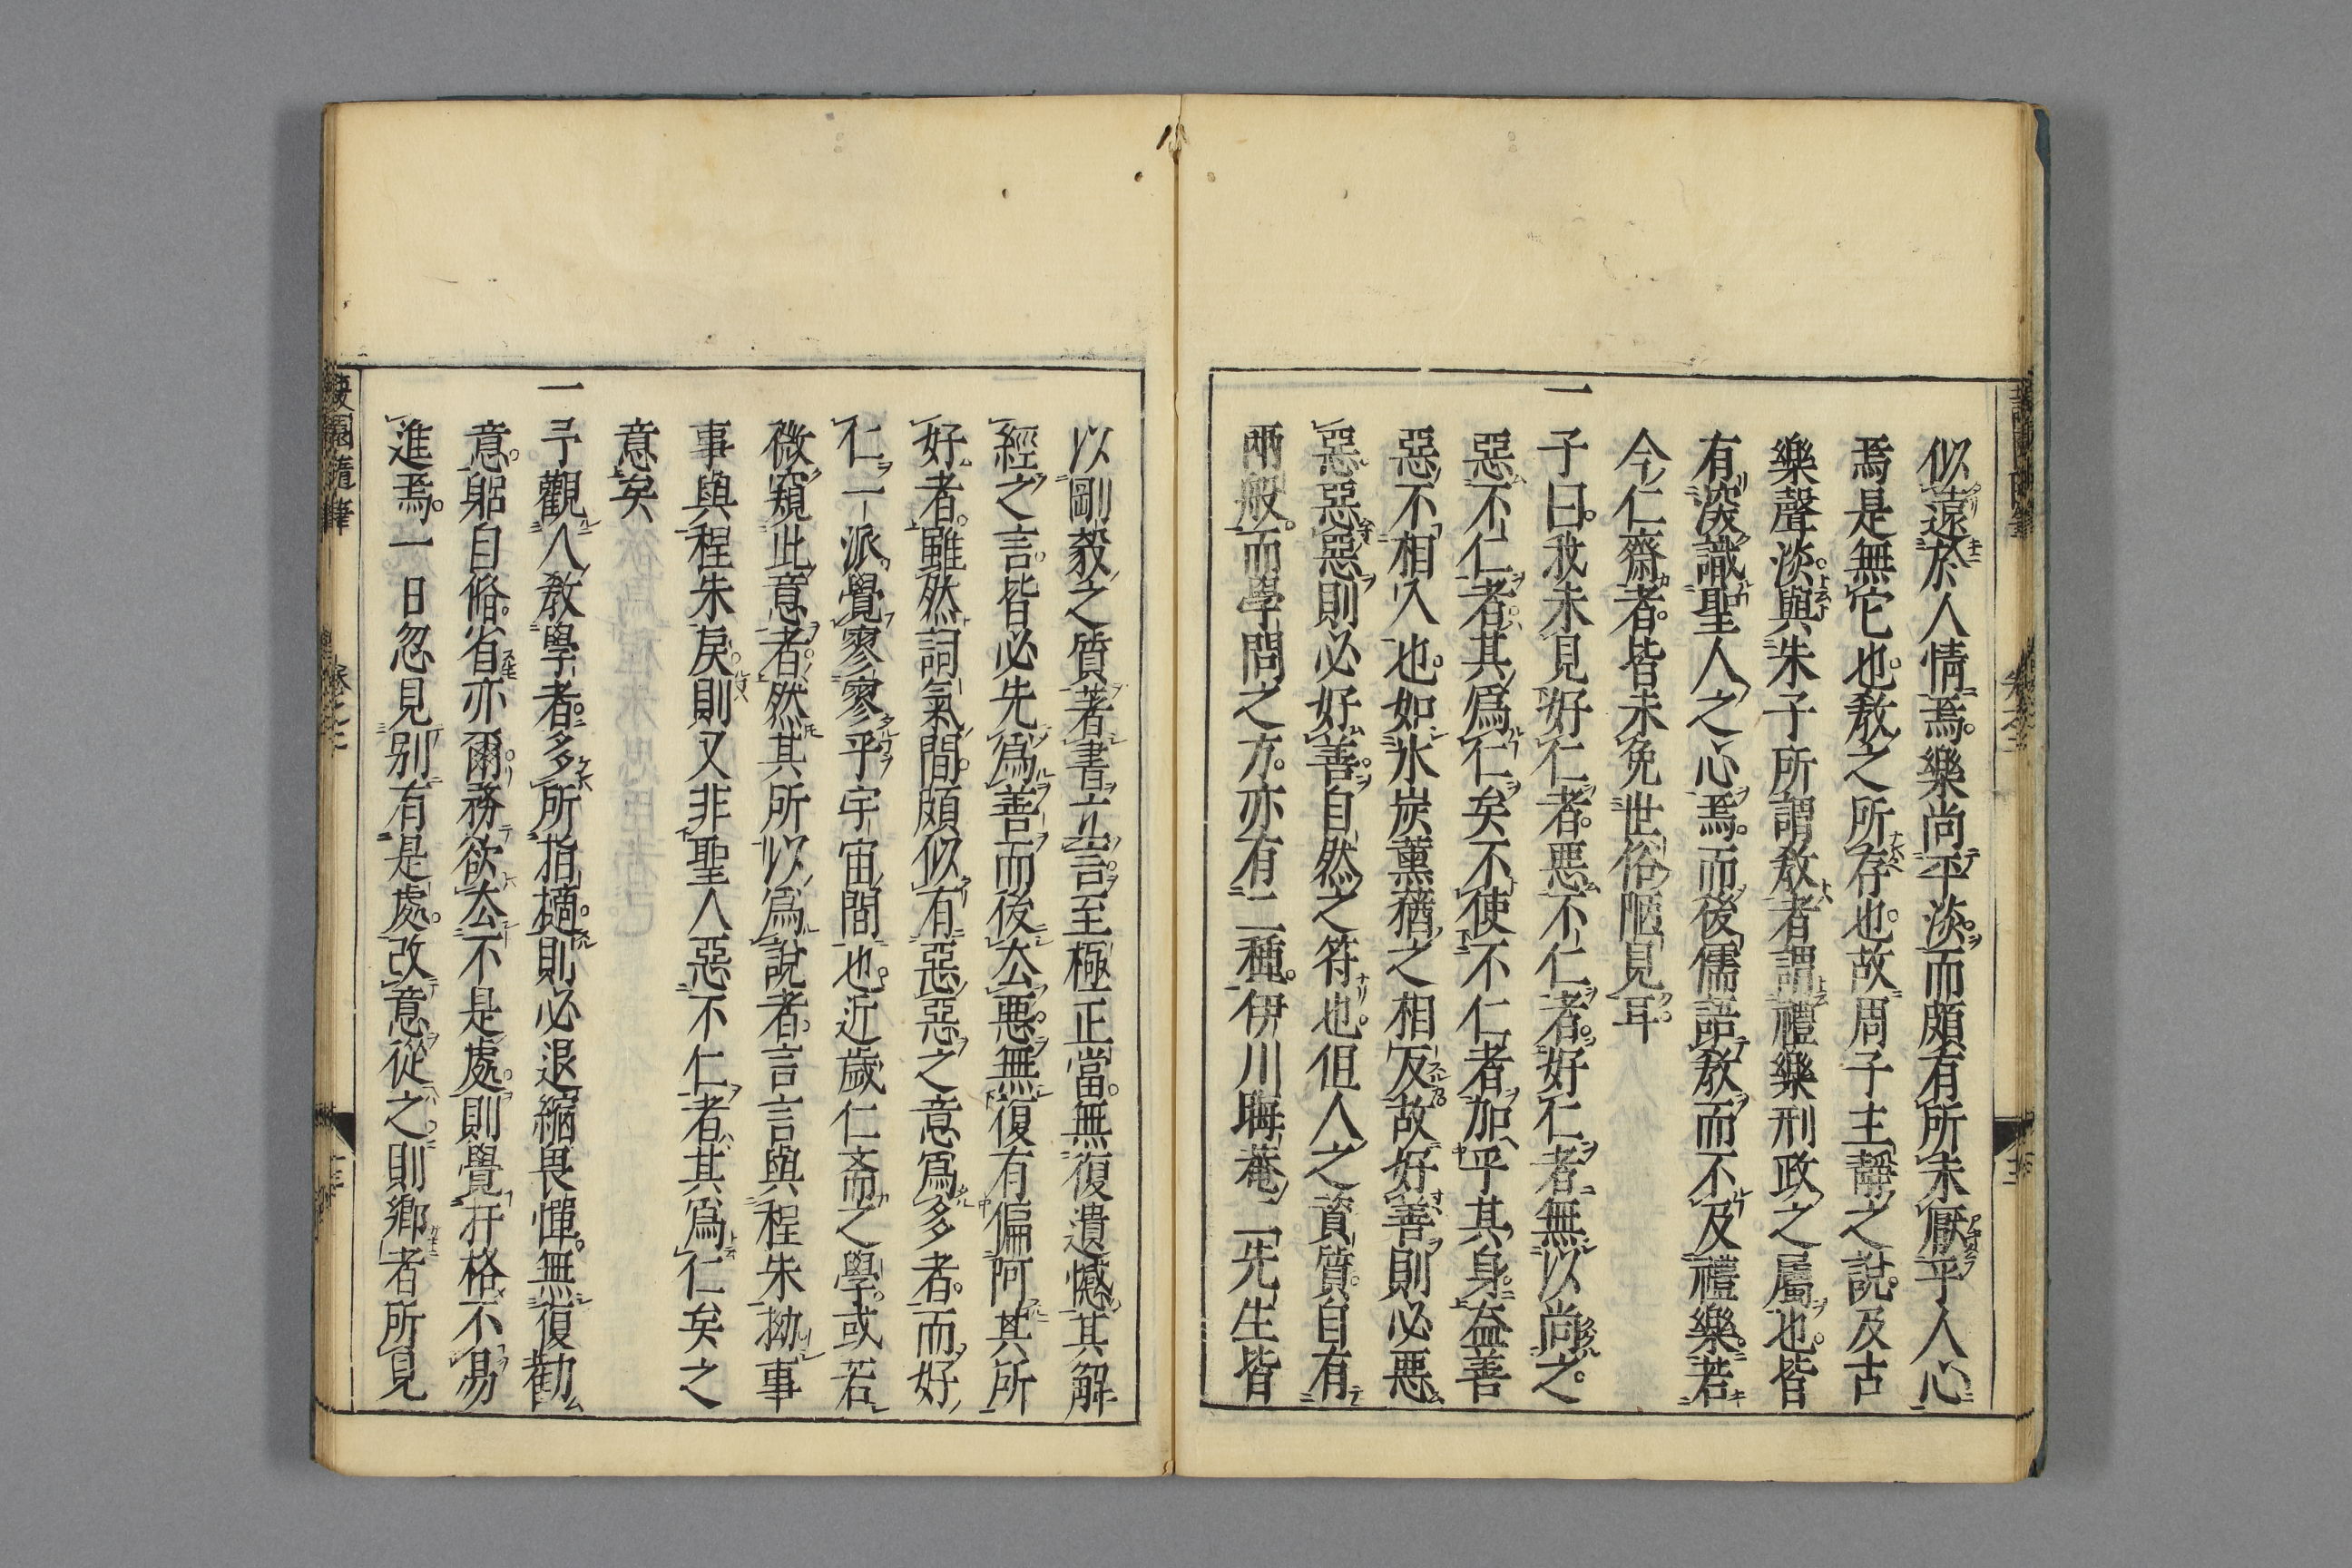 似遠於人情焉。樂尚平淡。而頗有所未厭乎人心
焉是無它也。敎之所存也。故周子主靜之說。及古
樂聲淡。與朱子所謂敎者謂禮樂刑政之屬也。皆
有深識聖人之心焉。而後儒語敎而不及禮樂。若
今仁齋者。皆未免世俗陋見耳。
一
子曰。我未見好仁者。惡不仁者。好仁者無以尚之。
惡不仁者。其爲仁矣不使不仁者加乎其身。益善
惡不相入也。如氷炭薰蕕之相反。故好善則必惡
惡惡惡則必好善。自然之符也。但人之資質。自有
兩般。而學問之方。亦有二種。伊川晦菴二先生皆
以剛毅之質著書立言。至極正當。無復遺憾其解
經之言。皆必先爲善而後厺惡。無復有偏阿其所
好者。雖然詞氣間。頗似有惡惡之意爲多者。而好
仁一派。覺寥寥乎宇宙間也。近歲仁斎之學。或若
微窺此意者。然其所以爲說者。言言與程朱拗事
事與程朱戾。則又非聖人惡不仁者。其爲仁矣之
意矣
一
予觀人敎學者。多所指擿。則必退縮畏憚。無復勸
意。躬自脩。省亦爾。務欲厺不是處。則覺扞格不易
進焉。一日忽見別有是處。改意從之。則鄉者所見
卷之二